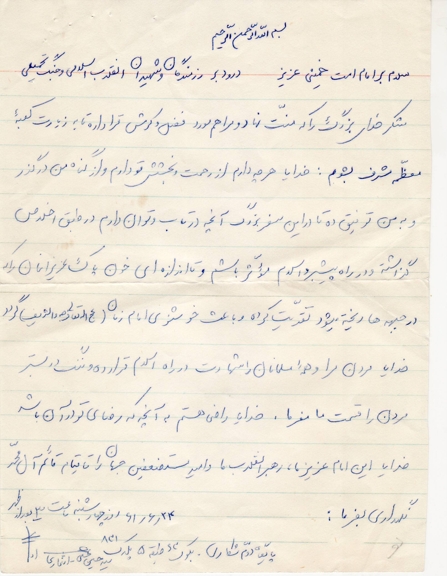 بسم الله الرحمن الرحیم
سلام بر امام امت خمینی عزیز درود بر رزمندگان و شهیدان انقلاب اسلامی و جنگ تحمیلی
شکر خدای بزرگ را که منّت نهاد و مرا هم مورد فضل و کرمش قرار داد تا به زیارت کعبهٔ
معظّمه مشرف بشوم : خدایا هر چه دارم از رحمت و بخشش تو دارم و از گناه من درگذر
و به من توفیق ده تا در این سفر بزرگ آنچه در تاب و توان دارم در طبق اخلاص
گذاشته و در راه پیشبرد اسلام مؤثّر باشم و تا اندازه ای خون پاک عزیزانمان را که
در جبهه ها ریخته میشود تقویت کرده و باعث خوشنودی امام زمان گردد
خدایا مردن مرا و همه مسلمانان را شهادت در راه اسلام قرار ده و ننگ در بستر
مردن را قسمت ما مفرما . خدایا راضی هستم به آنچه که رضای تو در آن باشد
خدایا این امام عزیز ما، رهبر انقلاب ما و امید مستضعفین جهان را تا قیام قائم آل محمّد
نگهداری بفرما :
۶۱/۶/۲۴ روز چهارشنبه ساعت بعدازظهر
بلوک طبقه ۵ پلاک ۸۳۱